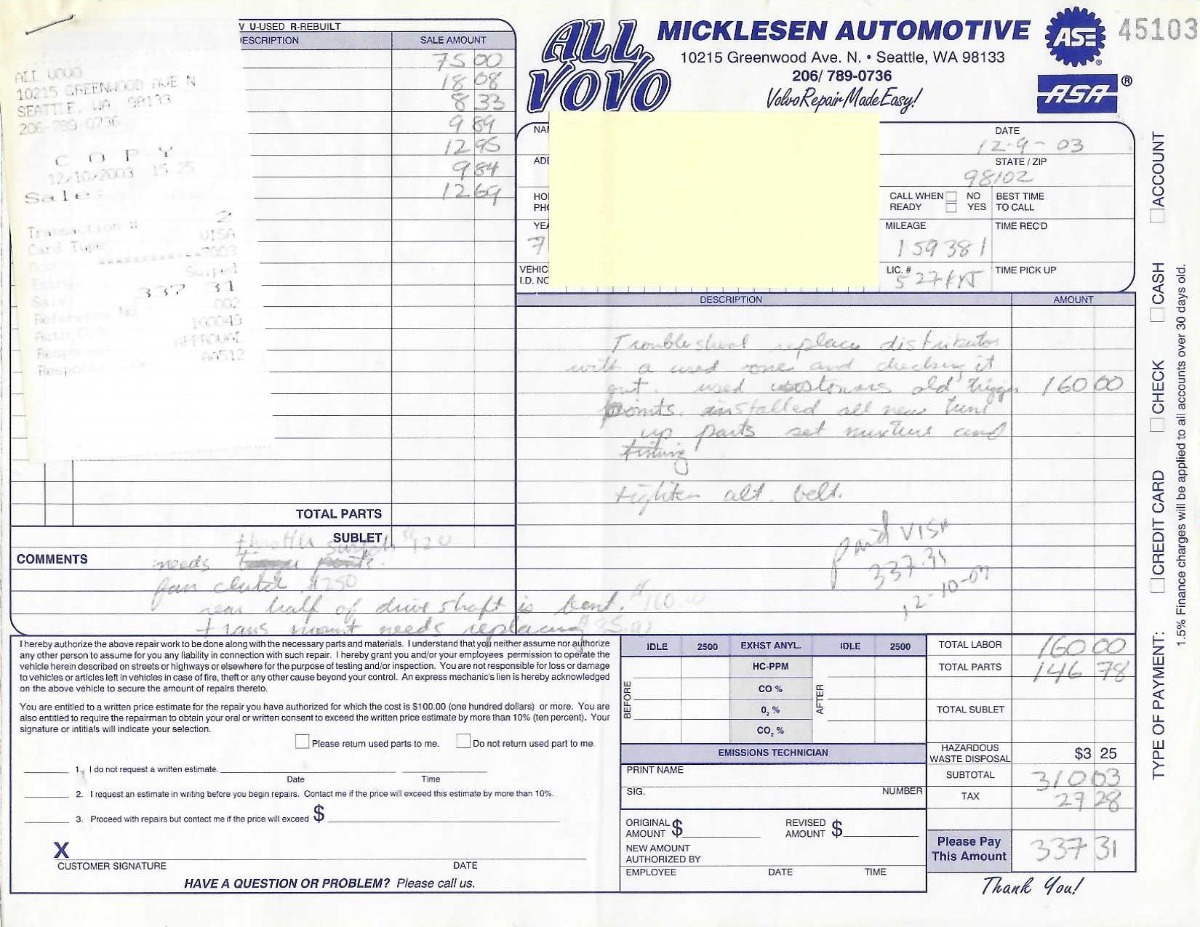 W U-USED R-REBUILT
ESCRIPTION SALE AMOUNT
75 00
18 08
8 33
9 89
12 95
9 84
12 69
ALL VOVO
10215 GREENWOOD AVE N
SEATTLE, WA, 98133
206-789-0736
COPY
12/10/2003 15 25
Sales
Transaction # 2
Card Type VISA
Swiped
337 31
Reference No 002
APPROVAL
AA512
TOTAL PARTS
SUBLET
COMMENTS
throttle switch $120
needs points.
fan clutch $250
rear half of drive shaft is bent. $160.00
trans mount needs replacing
ALL VOVO
MICKLESEN AUTOMOTIVE
10215 Greenwood Ave. N. • Seattle, WA 98133
206/ 789-0736
Volvo Repair Made Easy!
ASE ®
ASA ®
45103
DATE
12-9-03
STATE / ZIP
98102
CALL WHEN READY NO YES
BEST TIME TO CALL
MILEAGE
159381
TIME REC'D
LIC. #
TIME PICK UP
VEHIC
I.D. NO
DESCRIPTION AMOUNT
Troubleshoot replace distributor
with a used one and checking it
out. used customers old trigger 160 00
points. installed all new tune
up parts set mixture and
timing
tighten alt. belt.
paid VISA
337.31
12-10-03
I hereby authorize the above repair work to be done along with the necessary parts and materials. I understand that you neither assume nor authorize
any other person to assume for you any liability in connection with such repair. I hereby grant you and/or your employees permission to operate the
vehicle herein described on streets or highways or elsewhere for the purpose of testing and/or inspection. You are not responsible for loss or damage
to vehicles or articles left in vehicles in case of fire, theft or any other cause beyond your control. An express mechanic's lien is hereby acknowledged
on the above vehicle to secure the amount of repairs thereto.
You are entitled to a written price estimate for the repair you have authorized for which the cost is $100.00 (one hundred dollars) or more. You are
also entitled to require the repairman to obtain your oral or written consent to exceed the written price estimate by more than 10% (ten percent). Your
signature or intitials will indicate your selection.
Please return used parts to me. Do not return used part to me.
1. I do not request a written estimate.
Date Time
2. I request an estimate in writing before you begin repairs. Contact me if the price will exceed this estimate by more than 10%.
3. Proceed with repairs but contact me if the price will exceed $
X
CUSTOMER SIGNATURE DATE
HAVE A QUESTION OR PROBLEM? Please call us.
IDLE 2500 EXHST ANYL. IDLE 2500
BEFORE
HC-PPM
CO %
O2 %
CO2 %
AFTER
EMISSIONS TECHNICIAN
PRINT NAME
SIG. NUMBER
ORIGINAL AMOUNT $ REVISED AMOUNT $
NEW AMOUNT
AUTHORIZED BY
EMPLOYEE DATE TIME
TOTAL LABOR 160 00
TOTAL PARTS 146 78
TOTAL SUBLET
HAZARDOUS WASTE DISPOSAL $3 25
SUBTOTAL 310 03
TAX 27 28
Please Pay This Amount 337 31
Thank You!
TYPE OF PAYMENT: CREDIT CARD CHECK CASH ACCOUNT
1.5% Finance charges will be applied to all accounts over 30 days old.